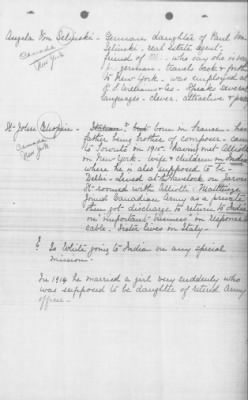 Angela Von Selinski - German, daughter of Paul Von
Canada
New York
Selinski - real estate agent,
friend of who say she is very
german - travels back &
to New York - was employed at
Speaks several
languages - clever, attractive &
St. John Chopin - born in France -
Canada
New York
father being brother of composer - came
to Toronto in 1915 having met
in New York. Wife & children in India
where he is also supposed to be -
Delhi - Lived at Havelock on Jarvis
St - roomed with
joined Canadian Army as a private
then got discharge to return to India
on "important business" on
cable. Sister lives in Italy -
? Is White going to India on any special
mission.
In 1914 he married a girl very suddenly who
was supposed to be daughter of retired Army
officer -